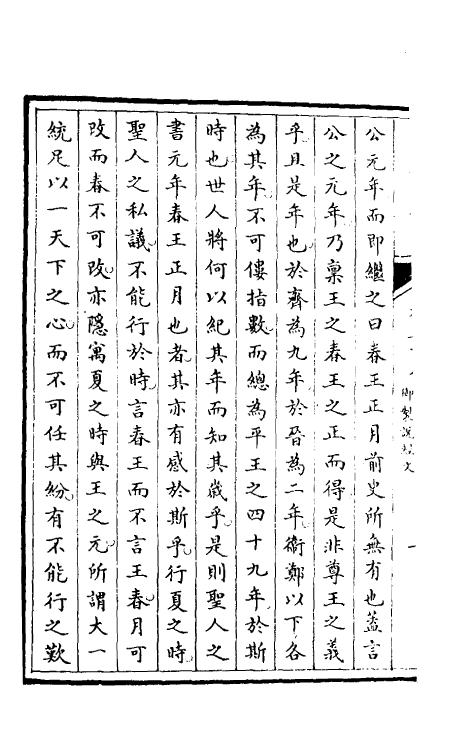 御製說經文
公元年而即繼之曰春王正月前史所無有也葢言
公之元年乃稟王之春王之正而得是非尊王之義
乎且是年也於齊為九年於晉為二年衛鄭以下各
為其年不可僂指數而總為平王之四十九年於斯
時也世人將何以紀其年而知其歲乎是則聖人之
書元年春王正月也者其亦有感於斯乎行夏之時
聖人之私議不能行於時言春王而不言王春月可
改而春不可改亦隱寓夏之時與王之元所謂大一
統足以一天下之心而不可任其紛有不能行之歎